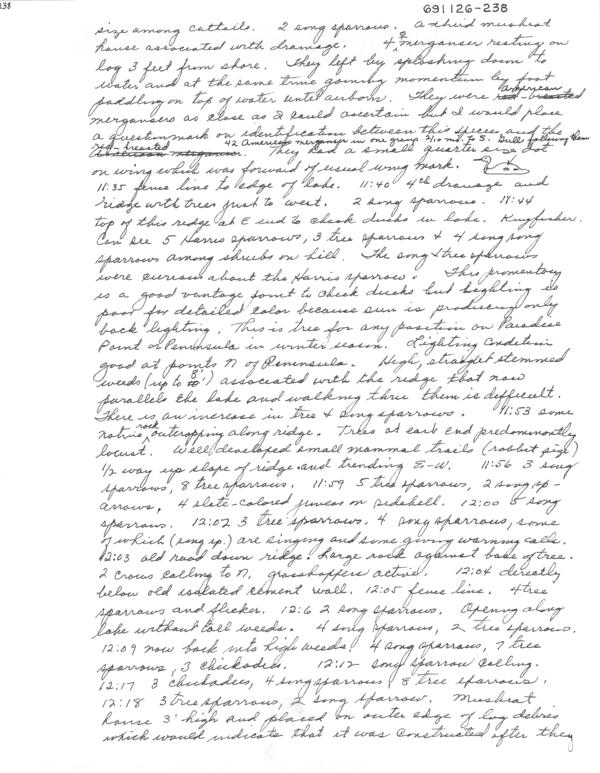 238
691126-238
size among cattails. 2 song sparrows. A third muskrat
house associated with drainage. 4 ♀ merganser resting on
log 3 feet from shore. They left by splashing down to
water and at the same time gaining momentum by foot
paddling on top of water until airborn. They were red-breasted American
mergansers as close as I could ascertain but I would place
a question mark on identification between this species and the
red-breasted American merganser. 42 American merganser in one group 2/10 mi. to S. Gulls following them
They had a small quarter size dot
on wing which was forward of usual wing mark.
11:35 fence line to edge of lake. 11:40 4th drainage and
ridge with trees just to west. 2 song sparrows. 11:44
top of this ridge at E end to check ducks in lake. Kingfisher.
Can see 5 Harris sparrows, 3 tree sparrows & 4 song song
sparrows among shrubs on hill. The song & tree sparrows
were curious about the Harris sparrow. This promontory
is a good vantage point to check ducks but lighting is
poor for detailed color because sun is producing only
back lighting. This is true for any position on Paradise
Point or Peninsula in winter season. Lighting condition
good at points N of Peninsula. High, straight stemmed
weeds (up to 8') associated with the ridge that now
parallels the lake and walking thru them is difficult.
There is an increase in tree & song sparrows. 11:53 some
native rock outcropping along ridge. Trees at east end predominantly
locust. Well developed small mammal trails (rabbit size)
1/2 way up slope of ridge and trending E-W. 11:56 3 song
sparrows, 8 tree sparrows. 11:59 5 tree sparrows, 2 song sp-
arrows, 4 slate-colored juncos on sidehill. 12:00 5 song
sparrows. 12:02 3 tree sparrows. 4 song sparrows, some
of which (song sp.) are singing and some giving warning calls.
12:03 old road down ridge. Large rock against base of tree.
2 crows calling to N, grasshoppers active. 12:04 directly
below old isolated cement wall. 12:05 fence line. 4 tree
sparrows and flicker. 12:6 2 song sparrows. Opening along
lake without tall weeds. 4 song sparrows, 2 tree sparrows.
12:09 now back into high weeds 4 song sparrows, 7 tree
sparrows, 3 chickadees. 12:12 song sparrow calling.
12:17 3 chickadees, 4 song sparrows, 8 tree sparrows.
12:18 3 tree sparrows, 2 song sparrow. Muskrat
house 3' high and placed on outer edge of log debris
which would indicate that it was constructed after they